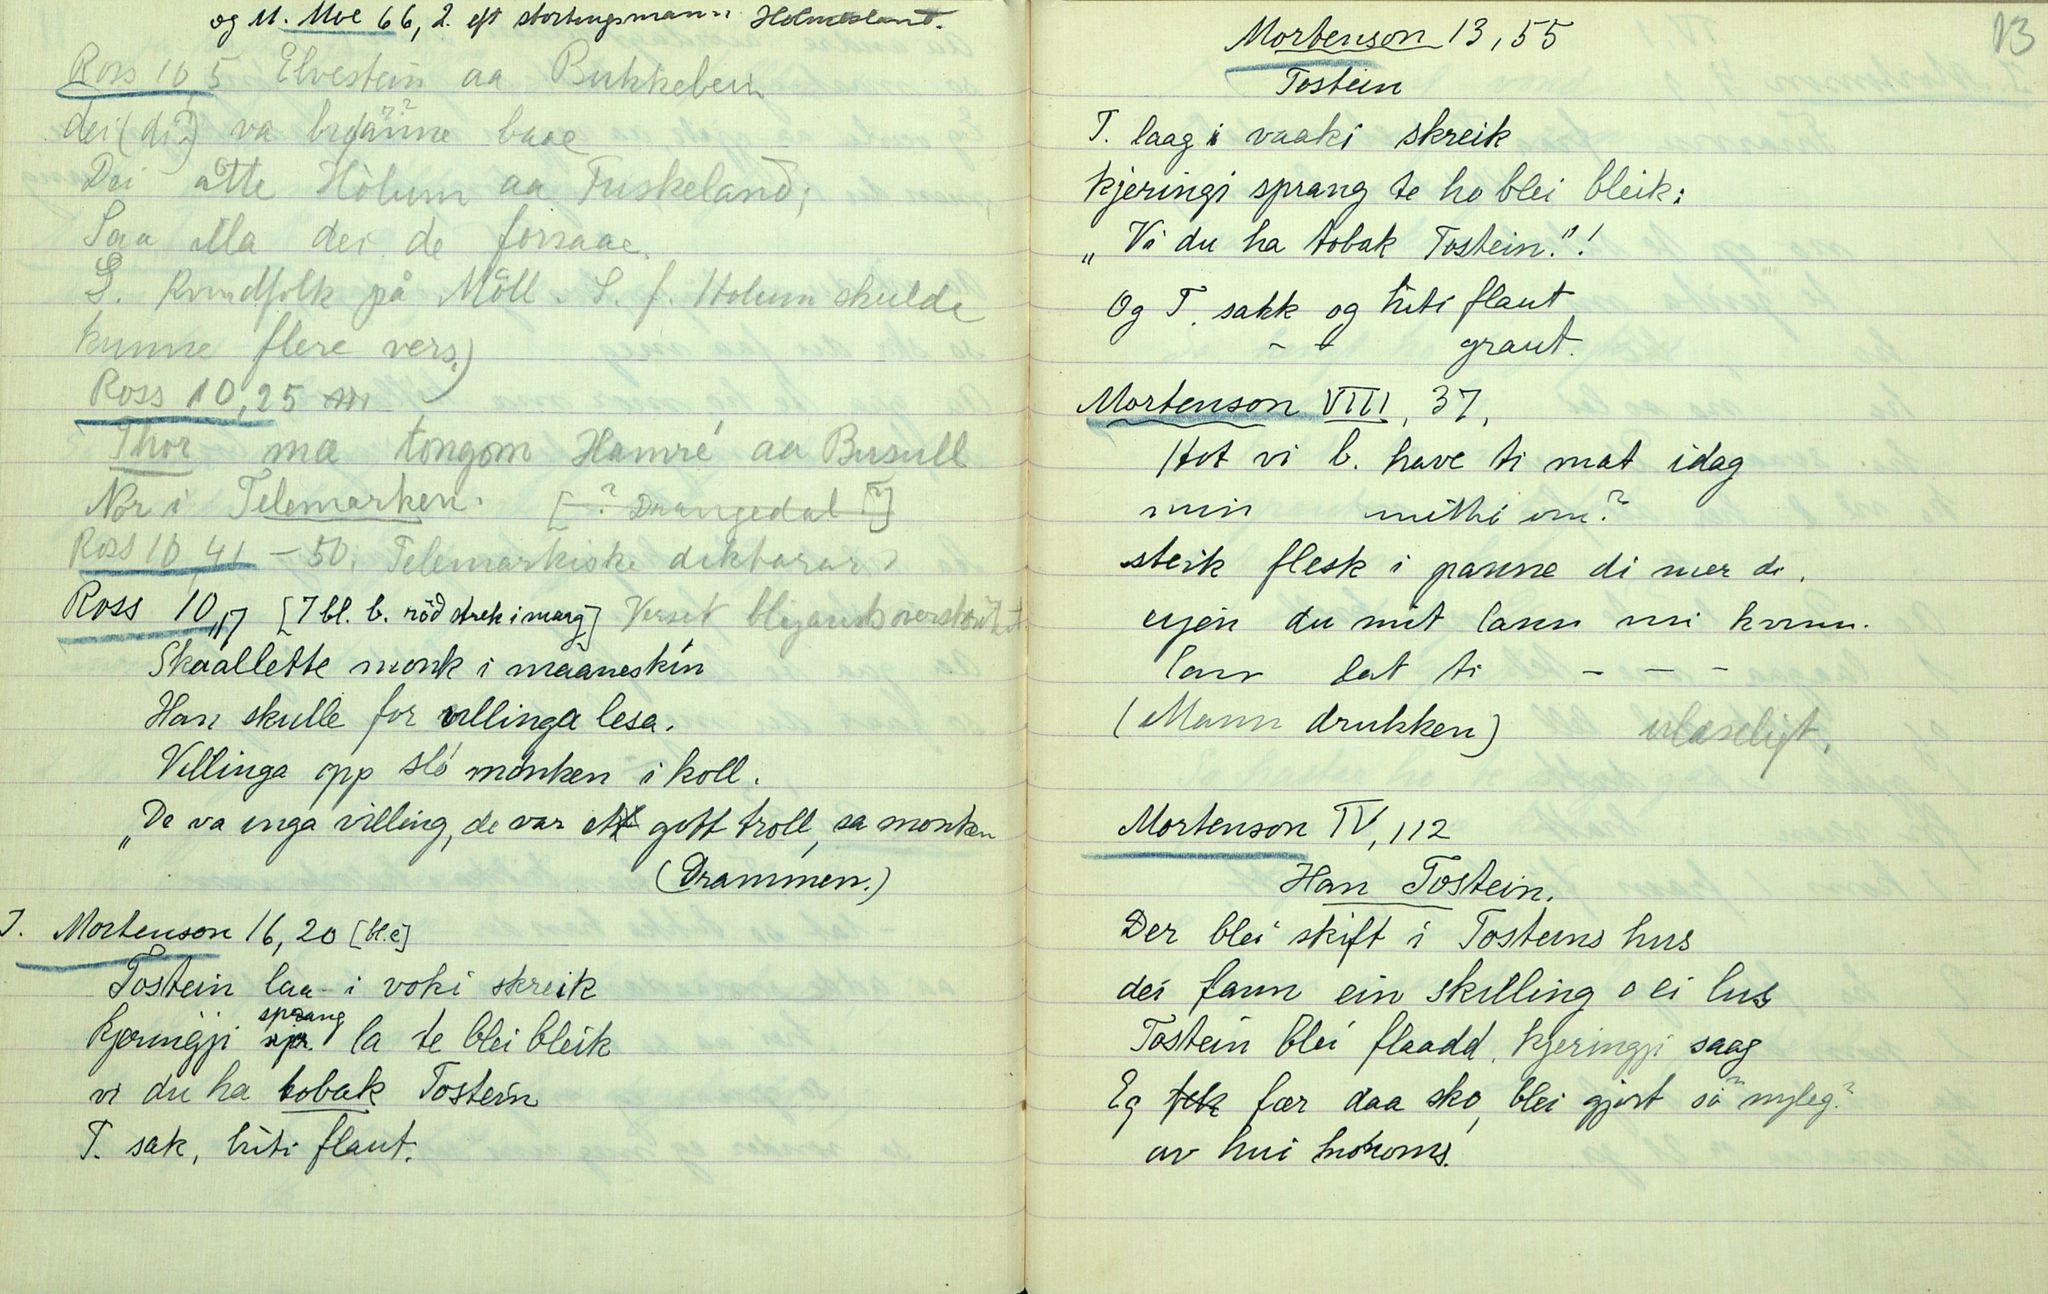 og M. Moe 66, 2. eft stortingsmann Holmesland.
Ross 10,5 Elvestein aa Bukkebein
dei (di?) va brødänne baae
Dei åtte Hólum aa Tuskeland;
Saa illa dei de forsaae.
S. Rundfolk på Mőll. S. f. Holum skulde
kunne flere vers.)
Ross 10,25 m
Thor mæ tongom Hamré aa Busull
Nor i Telemarken. [? Drangedal ?]
Ross 10, 41 - 50. Telemarkiske diktarar
Ross 10,17 [7 bl. b. röd strek i marg] Verset blyants overstrüket
Skaallette monk i maaneskin
Han skulle for villinga lesa.
Villinga opp sló monken i koll.
„De va inga villing, de var ett gott troll, sa monken
(Drammen.)
I. Mortenson 16, 20 [bl.c]
Tostein laa i voki skreik
kjeringji sprang la te blei bleik
vi du ha tobak Tostein
T. sak, tüti flaut.
13
Mortenson 13, 55
Tostein
T. laag i vaaki skreik
kjeringi sprang te ho blei bleik:
„Vi du ha tobak Tostein."!
Og T. sakk og tüti flaut
- - graut.
Mortenson VIII, 37,
Hot vi b. have ti mat idag
min mitthi om?
steik flesk i panne di mer di.
ejen du mit lann mi konn.
lann lat ti - - -
(Mann drukken) ulæseligt.
Mortenson IV, 112
Han Tostein.
Der blei skift i Tosteins hus
dei fann ein skilling o ei lus
Tostein blei flaadd, kjeringji saag
Eg fær daa sko, blei gjort så? nyleg?
av hui honoms.